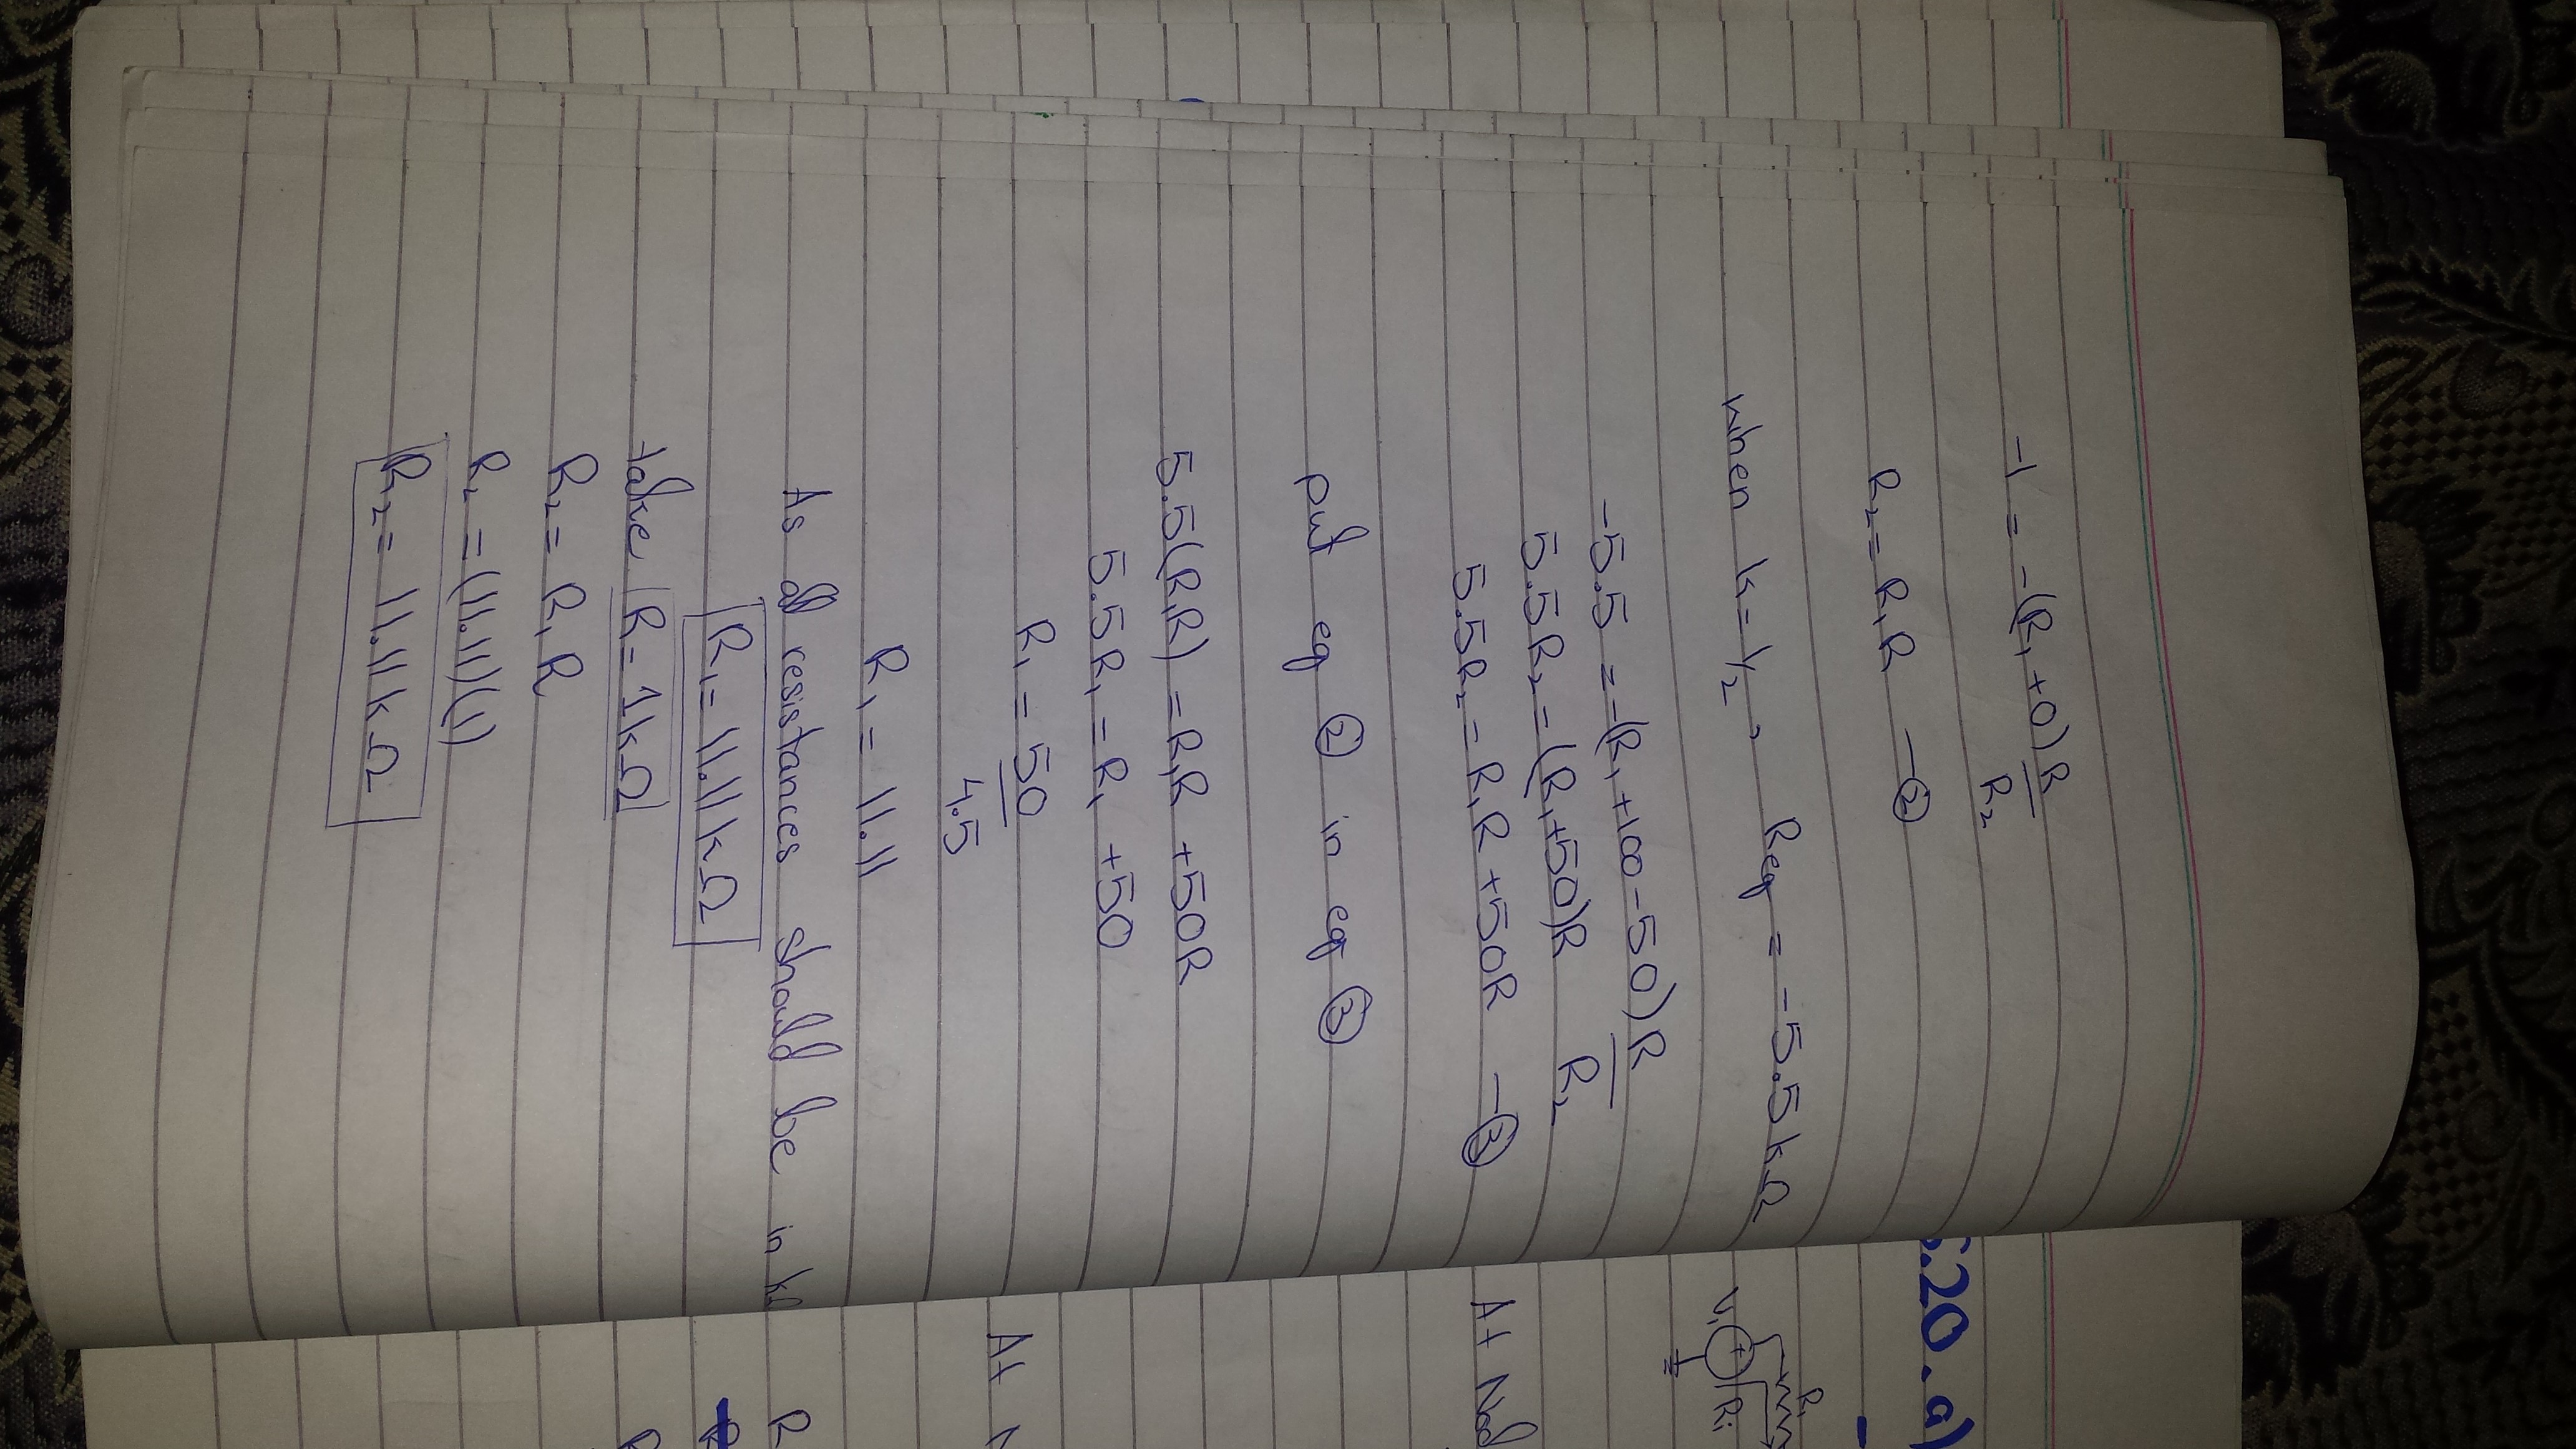 -1 = -(R₁+0) R/R₂
R₂ = R₁R -②
when k=1/2, Req = -5.5kΩ
-5.5 = -(R₁+100-50) R/R₂
5.5R₂ = (R₁+50)R
5.5R₂ = R₁R+50R -③
put eq ② in eq ③
5.5(R₁R) = R₁R +50R
5.5R₁ = R₁ +50
R₁ = 50/4.5
R₁ = 11.11
As all resistances should be in
R₁ = 11.11kΩ
take R=1kΩ
R₂ = R₁R
R₂ = (11.11)(1)
R₂ = 11.11kΩ
.20.a)
R₁
V₁ + Ri
At
At
R